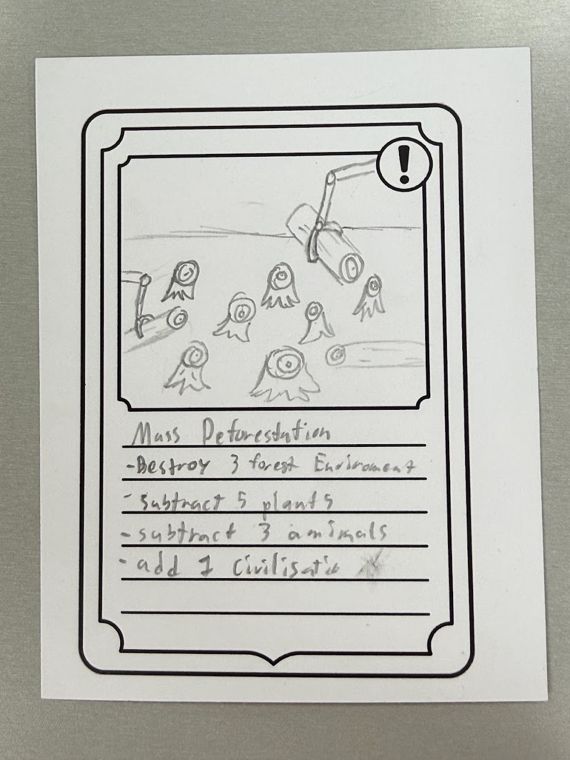 !
Mass Deforestation
-Destroy 3 forest Enviroment
-subtract 5 plants
-subtract 3 animals
-add 1 Civilisatio